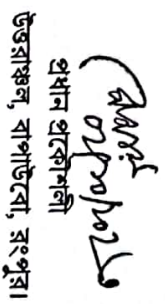 প্রধান প্রকৌশলী
উত্তরাঞ্চল, বাপাউবো, রংপুর।